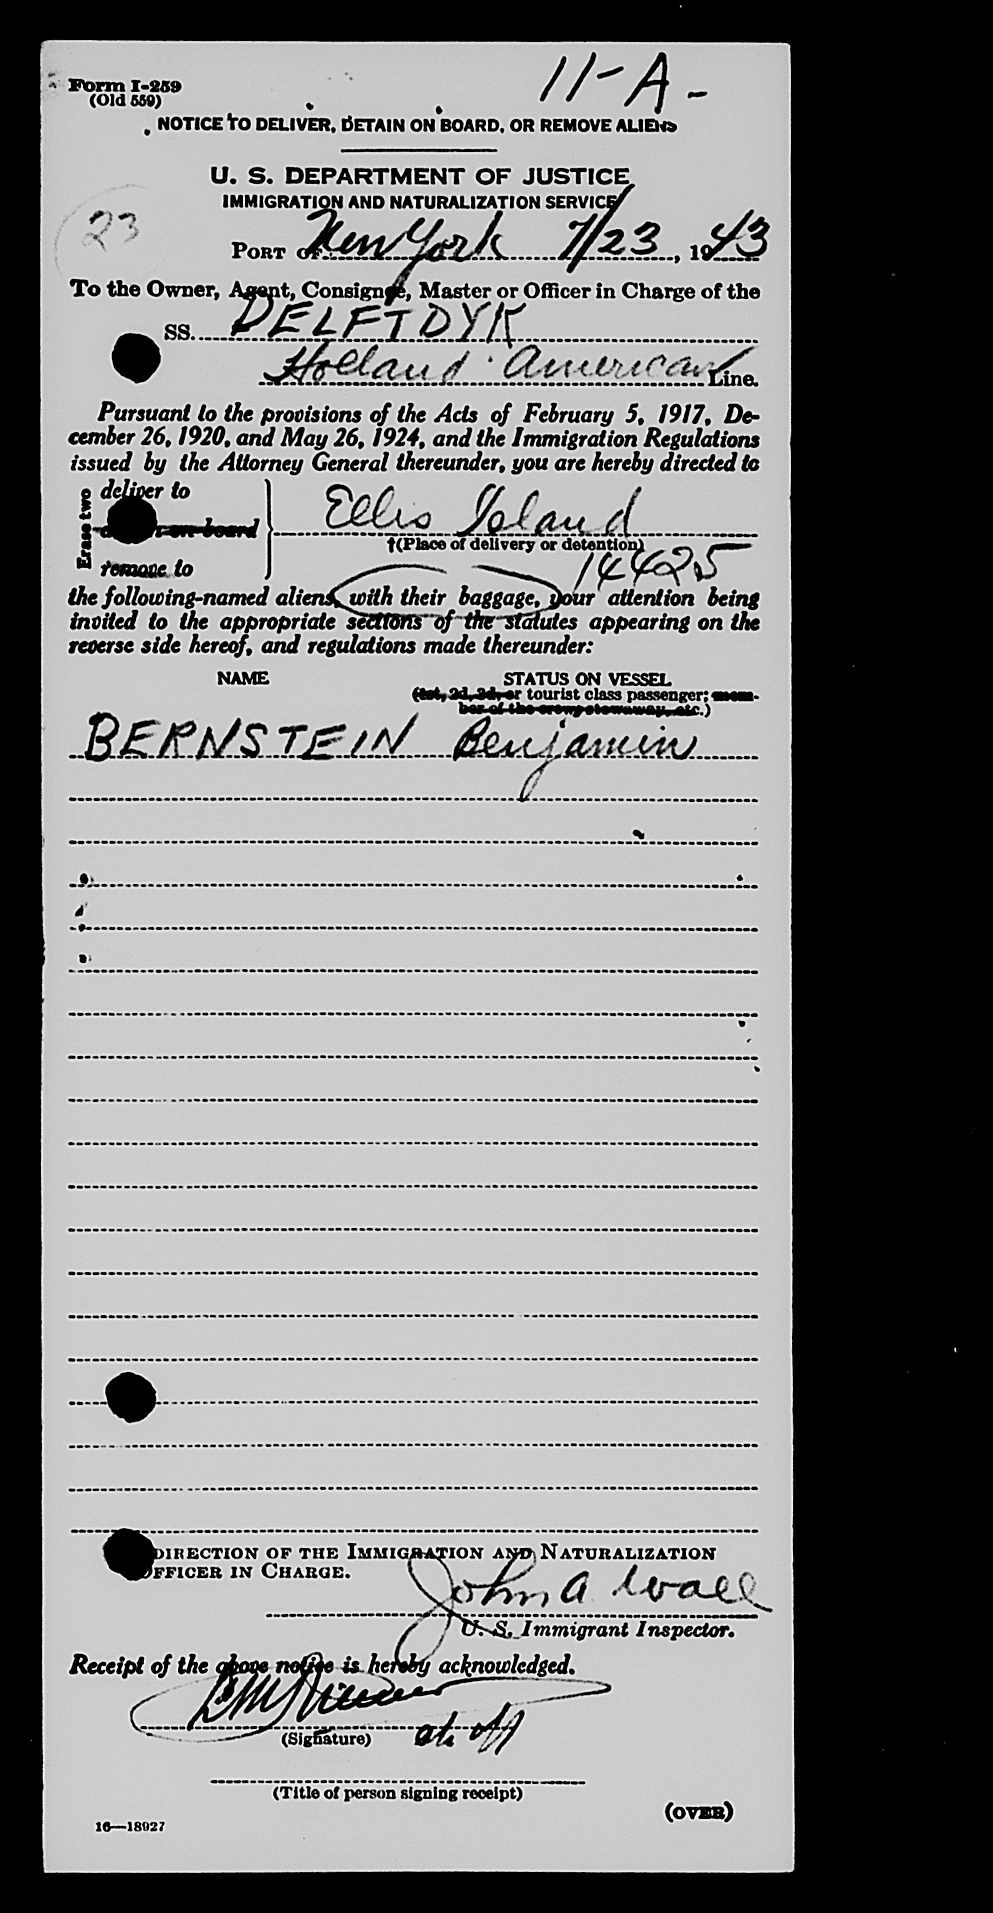 11-A-
Form I-259
(Old 559)
NOTICE TO DELIVER, DETAIN ON BOARD, OR REMOVE ALIENS
U. S. DEPARTMENT OF JUSTICE
IMMIGRATION AND NATURALIZATION SERVICE
23
PORT OF New York 7/23, 1943
To the Owner, Agent, Consignee, Master or Officer in Charge of the
SS. DELFTDYK
Holland American Line.
Pursuant to the provisions of the Acts of February 5, 1917, De-
cember 26, 1920, and May 26, 1924, and the Immigration Regulations
issued by the Attorney General thereunder, you are hereby directed to
Erase two
deliver to
on board
Ellis Island
†(Place of delivery or detention)
remove to
14425
the following-named aliens, with their baggage, your attention being
invited to the appropriate sections of the statutes appearing on the
reverse side hereof, and regulations made thereunder:
NAME STATUS ON VESSEL
(1st, 2d, 3d, or tourist class passenger; mem-
ber of the crew, stowaway, etc.)
BERNSTEIN Benjamin
DIRECTION OF THE IMMIGRATION AND NATURALIZATION
OFFICER IN CHARGE.
John A Wall
U. S. Immigrant Inspector.
Receipt of the above notice is hereby acknowledged.
(Signature)
(Title of person signing receipt)
(OVER)
16—18927